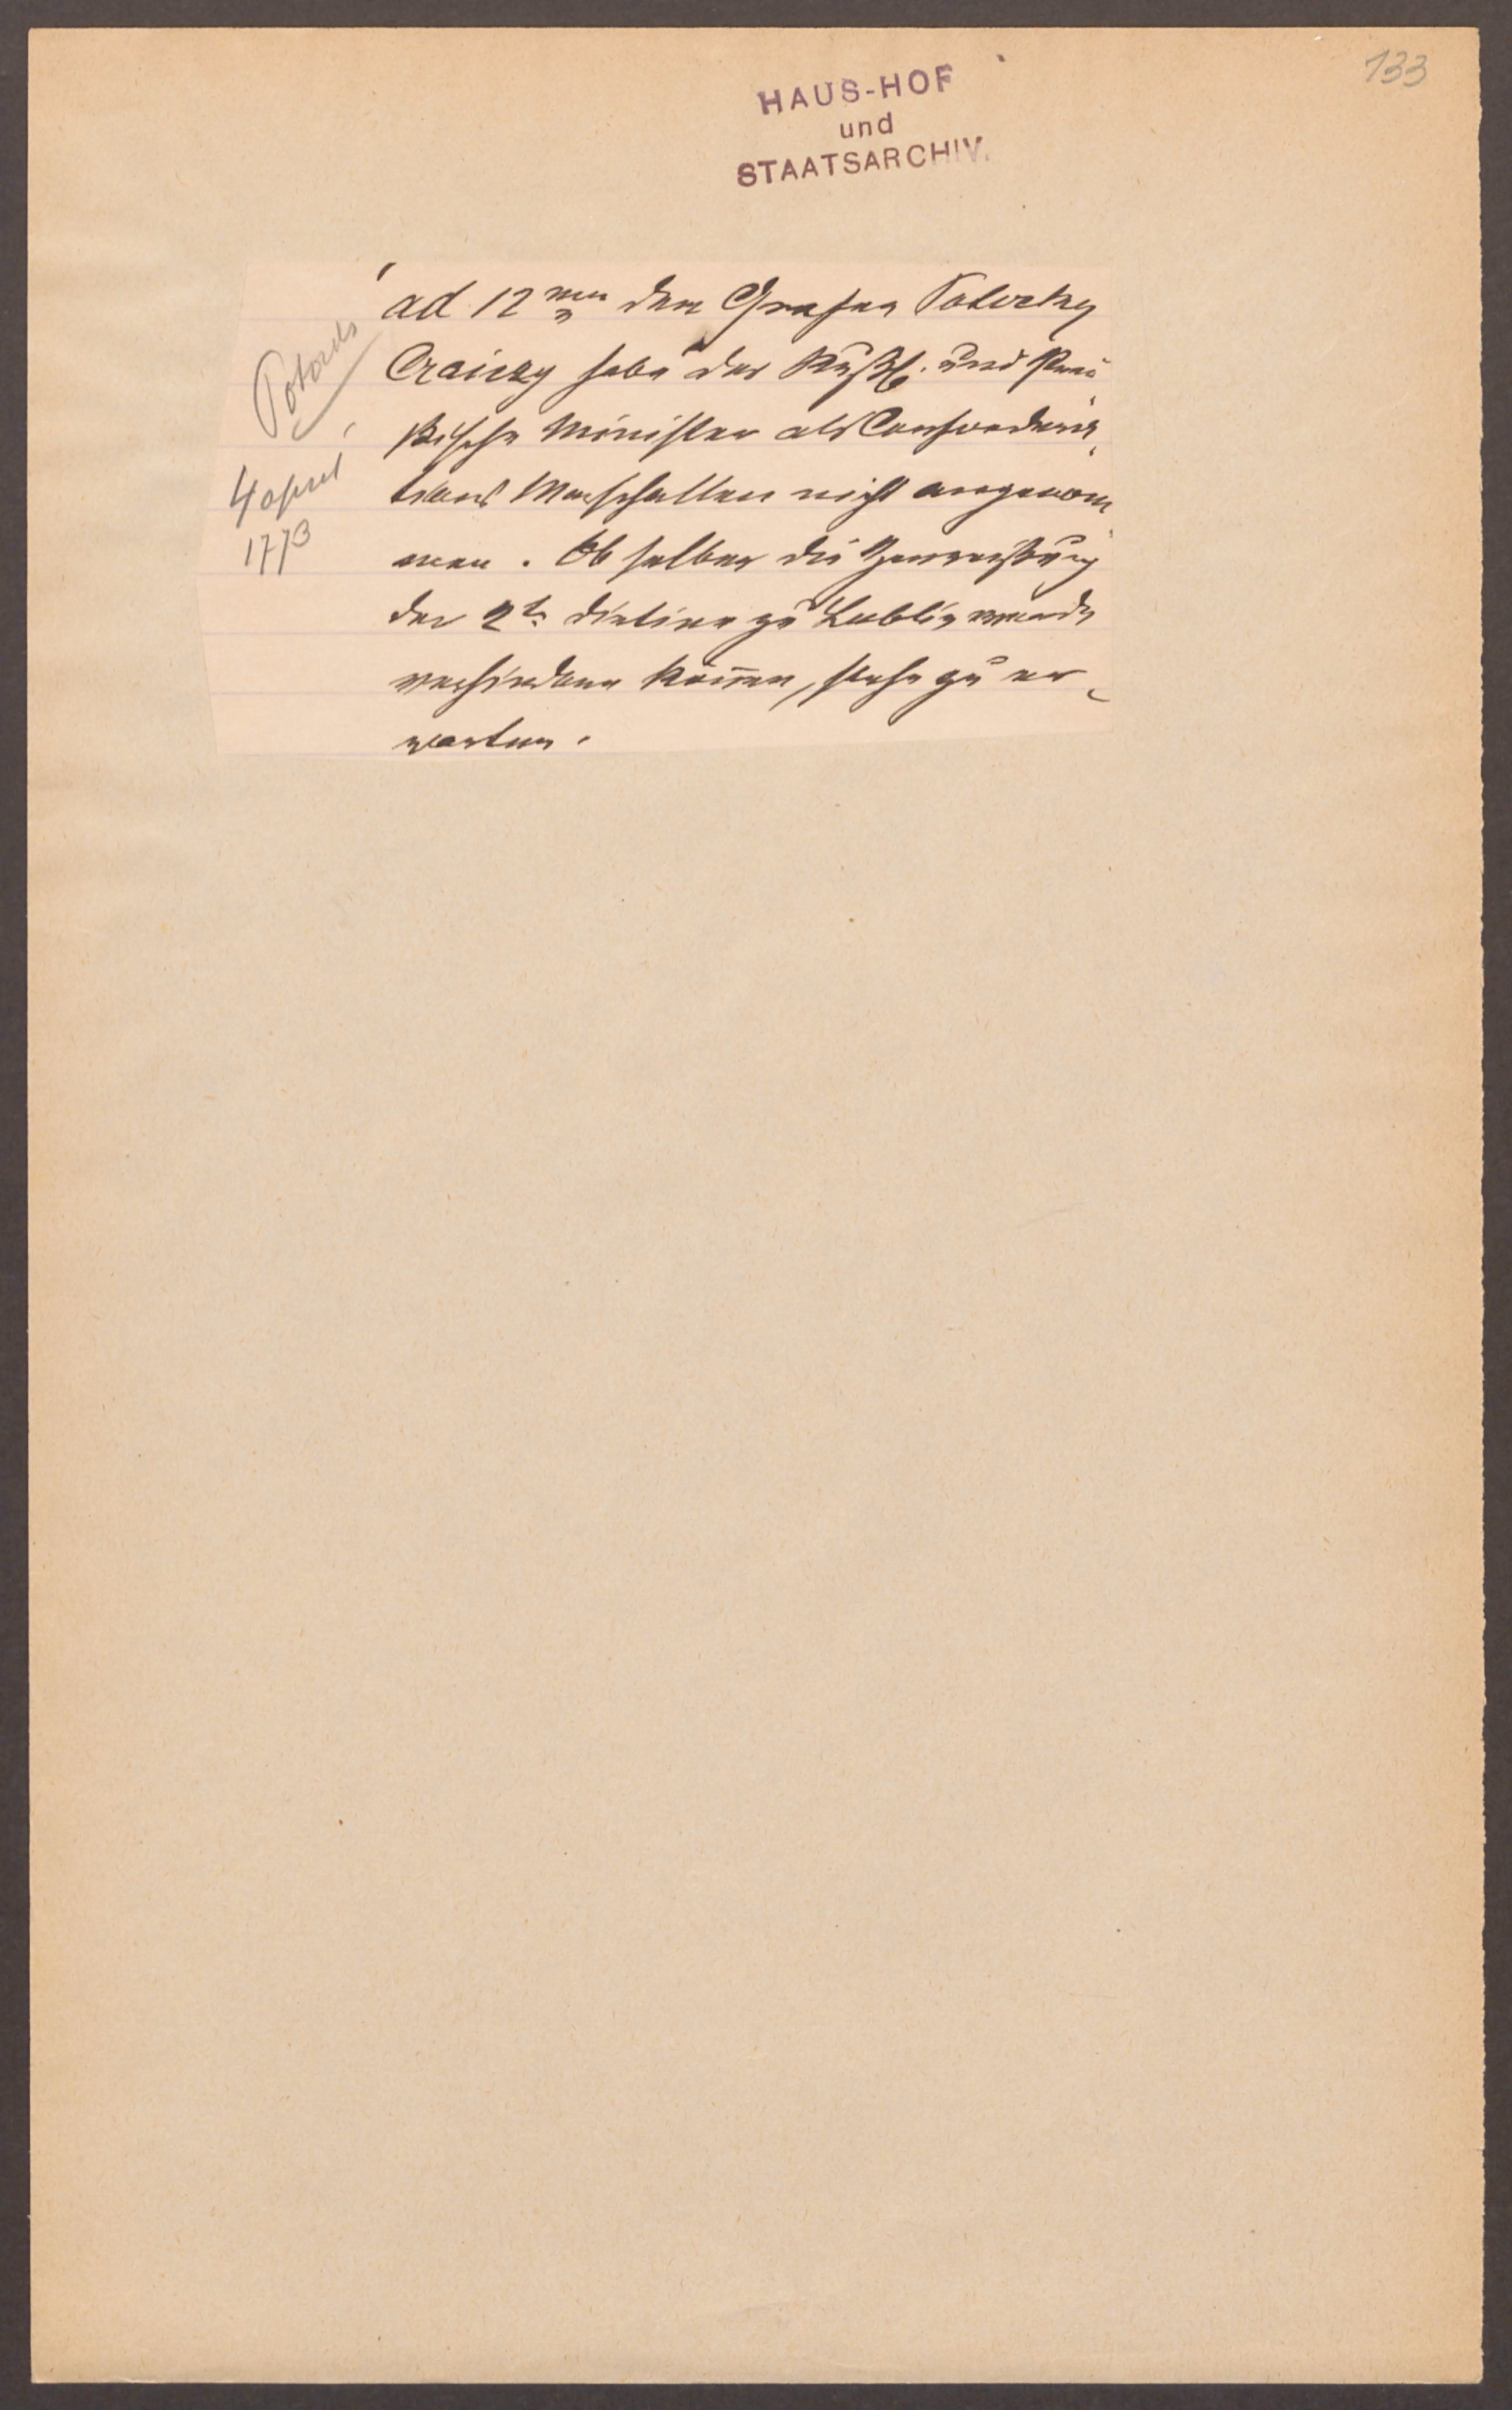 133
HAUS-HOF
und
STAATSARCHIV.
Potocki
4 april
1773
ad 12mum den Grafen Potocky
Craiczy habe der Rußs. und Preu
ßische Minister als Confoedera
tions Marschallen nicht angenom
men. Ob selber die Zerreißung
der 2t. dietine zu Lublin werde
verhindern können, stehe zu er
warten.